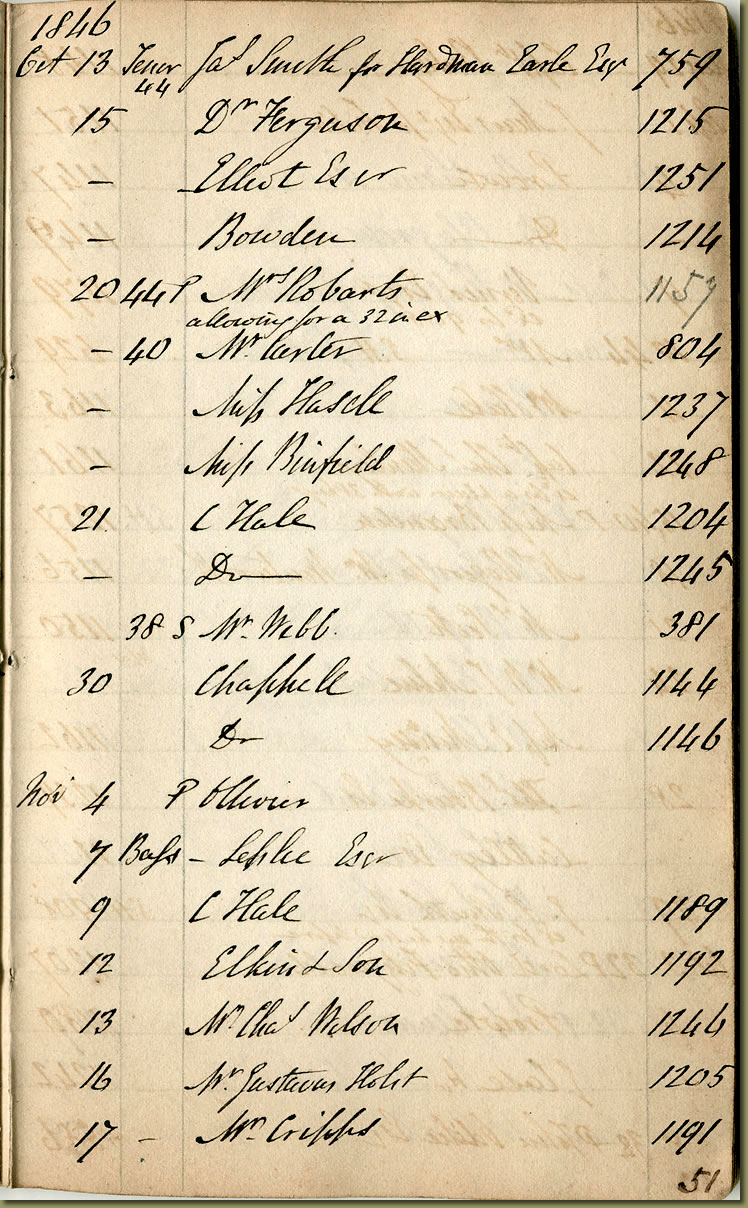 1846
Oct 13 Tenor Jas Smith for Hardman Earle Esqr 759
44
15 Dr Ferguson 1215
– Elliot Esqr 1251
– Bowden 1214
20 44 P Mrs Robarts 1157
allowing for a 32 in ex
– 40 Mr Carter 804
– Miss Hasell 1237
– Miss Binfield 1248
21 C Hale 1204
– Do 1245
38 S Mr Webb. 381
30 Chappell 1144
Do 1146
Nov 4 P Ollivier
7 Bass – Leslie Esqr
9 C Hale 1189
12 Elkin & Son 1192
13 Mr Chas Wilson 1246
16 Mr Gustavus Holst 1205
17 – Mr Cripps 1191
51